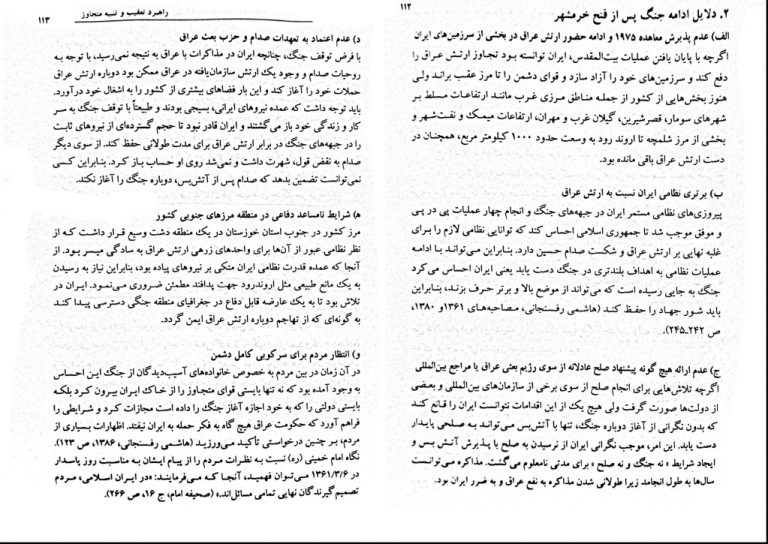 ۱۱۲
۲. دلایل ادامه جنگ پس از فتح خرمشهر
الف) عدم پذیرش معاهده ۱۹۷۵ و ادامه حضور ارتش عراق در بخشی از سرزمین‌های ایران
اگرچه با پایان یافتن عملیات بیت‌المقدس، ایران توانسته بود تجاوز ارتش عراق را
دفع کند و سرزمین‌های خود را آزاد سازد و قوای دشمن را تا مرز عقب براند ولی
هنوز بخش‌هایی از کشور از جمله مناطق مرزی غرب مانند ارتفاعات مسلط بر
شهرهای سومار، قصرشیرین، گیلان غرب و مهران، ارتفاعات میمک و نفت‌شهر و
بخشی از مرز شلمچه تا اروند رود به وسعت حدود ۱۰۰۰ کیلومتر مربع، همچنان در
دست ارتش عراق باقی مانده بود.
ب) برتری نظامی ایران نسبت به ارتش عراق
پیروزی‌های نظامی مستمر ایران در جبهه‌های جنگ و انجام چهار عملیات پی در پی
و موفق موجب شد تا جمهوری اسلامی احساس کند که توانایی نظامی لازم را برای
غلبه نهایی بر ارتش عراق و شکست صدام حسین دارد. بنابراین می‌تواند با ادامه
عملیات نظامی به اهداف بلندتری در جنگ دست یابد یعنی ایران احساس می‌کرد
جنگ به جایی رسیده است که می‌تواند از موضع بالا و برتر حرف بزند، بنابراین
باید شور جهاد را حفظ کند (هاشمی رفسنجانی، مصاحبه‌های ۱۳۶۱و ۱۳۸۰،
ص ۲۴۲ـ۲۴۵).
ج) عدم ارائه هیچ گونه پیشنهاد صلح عادلانه از سوی رژیم بعثی عراق یا مراجع بین‌المللی
اگرچه تلاش‌هایی برای انجام صلح از سوی برخی از سازمان‌های بین‌المللی و بعضی
از دولت‌ها صورت گرفت ولی هیچ یک از این اقدامات نتوانست ایران را قانع کند
که بدون نگرانی از آغاز دوباره جنگ، تنها با آتش‌بس می‌تواند به صلحی پایدار
دست یابد. این امر، موجب نگرانی ایران از نرسیدن به صلح با پذیرش آتش بس و
ایجاد شرایط « نه جنگ و نه صلح » برای مدتی نامعلوم می‌گشت. مذاکره می‌توانست
سال‌ها به طول انجامد زیرا طولانی شدن مذاکره به نفع عراق و به ضرر ایران بود.
راهبرد تعقیب و تنبیه متجاوز
۱۱۳
د) عدم اعتماد به تعهدات صدام و حزب بعث عراق
با فرض توقف جنگ، چنانچه ایران در مذاکرات با عراق به نتیجه نمی‌رسید، با توجه به
روحیات صدام و وجود یک ارتش سازمان‌یافته در عراق ممکن بود دوباره عراق
حملات خود را آغاز کند و این بار فضاهای بیشتری از کشور را به اشغال خود درآورد.
باید توجه داشت که عمده نیروهای ایرانی، بسیجی بودند و طبیعتاً با توقف جنگ به سر
کار و زندگی خود باز می‌گشتند و ایران قادر نبود تا حجم گسترده‌ای از نیروهای ثابت
را در جبهه‌های جنگ در برابر ارتش عراق برای مدت طولانی حفظ کند. از سوی دیگر
صدام به نقض قول، شهرت داشت و نمی‌شد روی او حساب باز کرد. بنابراین کسی
نمی‌توانست تضمین بدهد که صدام پس از آتش‌بس، دوباره جنگ را آغاز نکند.
ه) شرایط نامساعد دفاعی در منطقه مرزهای جنوبی کشور
مرز کشور در جنوب استان خوزستان در یک منطقه دشت وسیع قرار داشت که از
نظر نظامی عبور از آن‌ها برای واحدهای زرهی ارتش عراق به سادگی میسر بود. از
آنجا که عمده قدرت نظامی ایران متکی بر نیروهای پیاده بود، بنابراین نیاز به رسیدن
به یک مانع طبیعی مثل اروندرود جهت پدافند مطمئن ضروری می‌نمود. ایران در
تلاش بود تا به یک عارضه قابل دفاع در جغرافیای منطقه جنگی دسترسی پیدا کند
به گونه‌ای که از تهاجم دوباره ارتش عراق ایمن گردد.
و) انتظار مردم برای سرکوبی کامل دشمن
در آن زمان در بین مردم به خصوص خانواده‌های آسیب‌دیدگان از جنگ این احساس
به وجود آمده بود که نه تنها بایستی قوای متجاوز را از خاک ایران بیرون کرد بلکه
بایستی دولتی را که به خود اجازه آغاز جنگ را داده است مجازات کرد و شرایطی را
فراهم آورد که حکومت عراق هیچ گاه به فکر حمله به ایران نیفتد. اظهارات بسیاری از
مردم، بر چنین درخواستی تأکید می‌ورزید (هاشمی رفسنجانی، ۱۳۸۶، ص ۱۲۳).
نگاه امام خمینی (ره) نسبت به نظرات مردم را از پیام ایشان به مناسبت روز پاسدار
در ۱۳۶۱/۳/۶ می‌توان فهمید، آنجا که می‌فرمایند: «در ایران اسلامی، مردم
تصمیم‌گیرندگان نهایی تمامی مسائل‌اند.» (صحیفه امام، ج ۱۶، ص ۲۶۶).